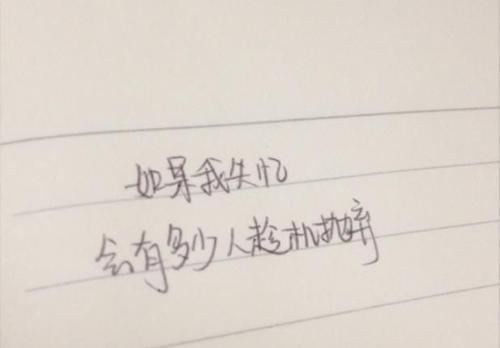 如果我失忆
会有多少人趁机抛弃